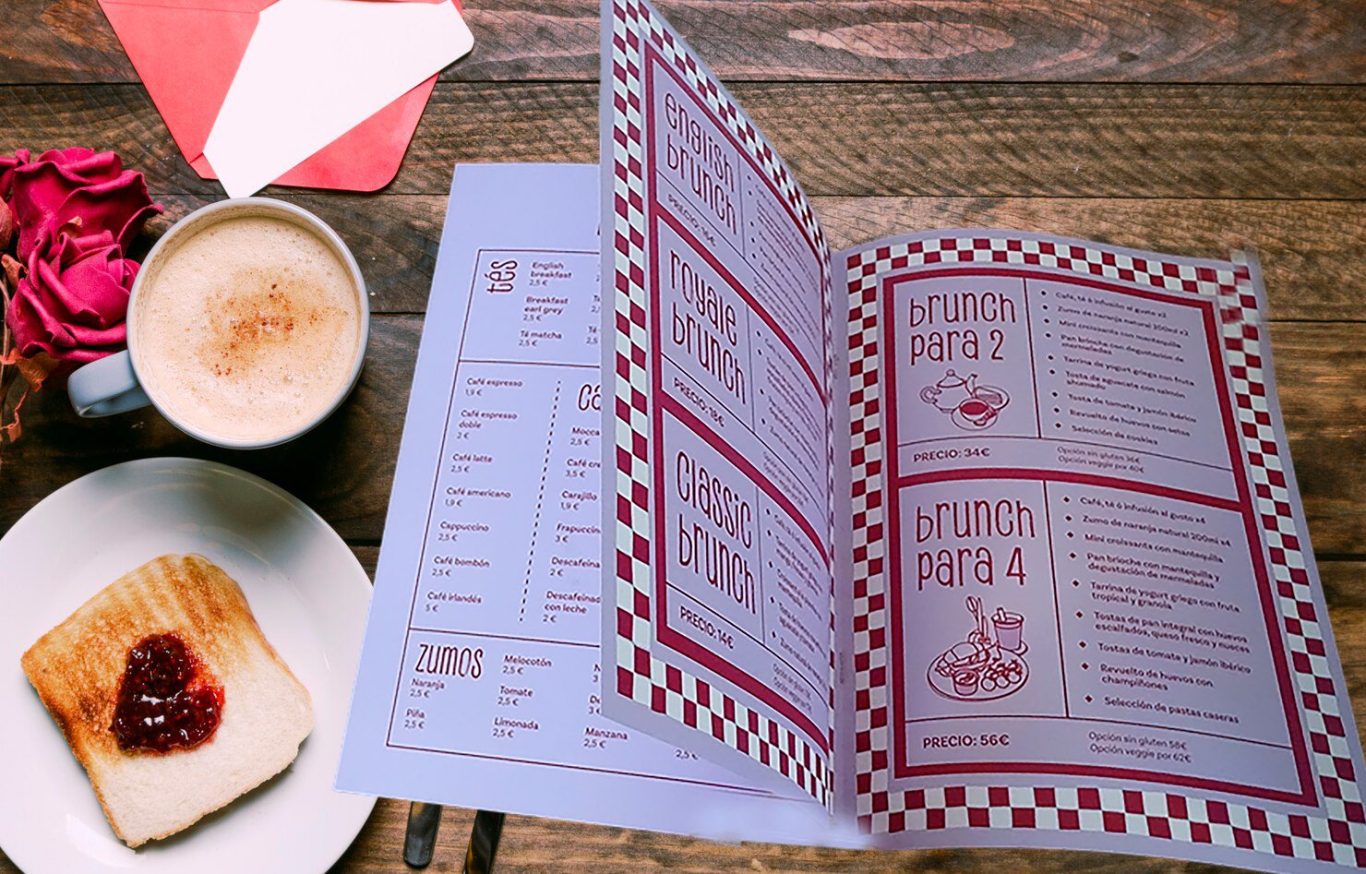 tés
English
breakfast
2,5 €
Breakfast
earl grey
2,5 €
Té matcha
2,5 €
Café espresso
1,9 €
Café espresso
doble
2 €
Café latte
2,5 €
Café americano
1,9 €
Cappuccino
2,5 €
Café bombón
2,5 €
Café irlandés
5 €
Ca
Mocca
2,5 €
Café cre
3,5 €
Carajillo
1,9 €
Frapuccin
3 €
Descafeina
2 €
Descafeinad
con leche
2 €
zumos
Naranja
2,5 €
Piña
2,5 €
Melocotón
2,5 €
Tomate
2,5 €
Limonada
2,5 €
Manzana
2,5 €
2,5 €
english
brunch
PRECIO: 16€
royale
brunch
PRECIO: 18€
classic
brunch
PRECIO: 14€
brunch
para 2
Café, té o infusión al gusto x2
Zumo de naranja natural 200ml x2
Mini croissants con mantequilla
Pan brioche con degustación de
mermeladas
Tarrina de yogurt griego con fruta
Tosta de aguacate con salmón
ahumado
Tosta de tomate y jamón ibérico
Revuelto de huevos con setas
Selección de cookies
PRECIO: 34€
Opción sin gluten 36€
Opción veggie por 40€
brunch
para 4
Café, té ó infusión al gusto x4
Zumo de naranja natural 200ml x4
Mini croissants con mantequilla
Pan brioche con mantequilla y
degustación de mermeladas
Tarrina de yogurt griego con fruta
tropical y granola
Tostas de pan integral con huevos
escalfados, queso fresco y nueces
Tostas de tomate y jamón ibérico
Revuelto de huevos con
champiñones
Selección de pastas caseras
PRECIO: 56€
Opción sin gluten 58€
Opción veggie por 62€